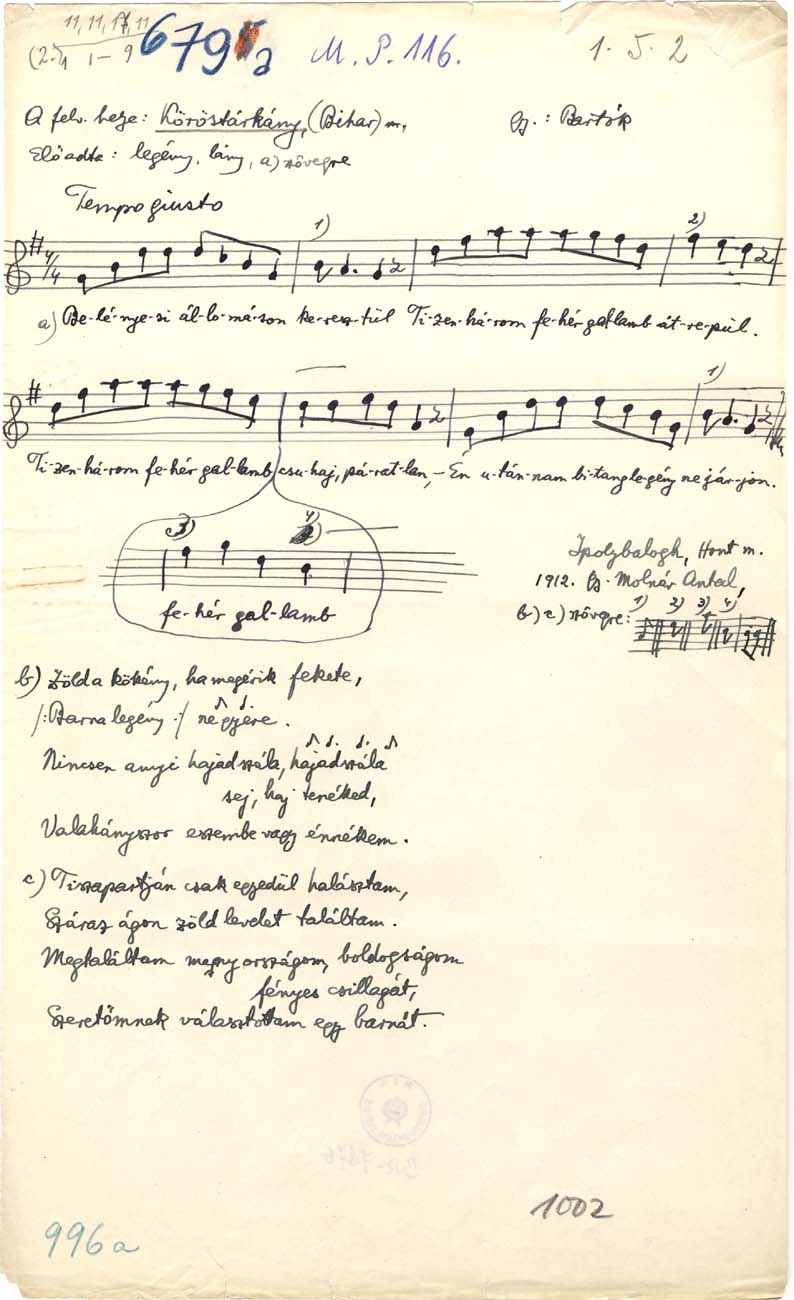 11, 11, 17, 11
1 – 9
679 a
M. P. 116.
1. 5. 2
A felv. helye: Köröstárkány, (Bihar) m.
Gy.: Bartók
Előadta: legény, lány, a) szövegre
Tempo giusto
1)
2)
4/4
a) Be-lé-nye-si ál-lo-má-son ke-resz-tül Ti-zen-há-rom fe-hér gal-lamb át-re-pül.
1)
Ti-zen-há-rom fe-hér gal-lamb csu-haj, pá-rat-lan, – Én u-tán-nam bi-tang legény ne jár-jon.
3)
4)
fe-hér gal-lamb
Ipolybalogh, Hont m.
1912. Gy. Molnár Antal,
b) c) szövegre: 1) 2) 3) 4)
b) Zöld a kökény, ha megérik fekete,
/: Barna legény :/ ne gyere.
Nincsen annyi hajadszála, hajadszála
sej, haj tenéked,
Valahányszor eszembe vagy énnékem.
c) Tiszapartján csak egyedül halásztam,
Száraz ágon zöld levelet találtam.
Megtaláltam menyországom, boldogságom
fényes csillagát,
Szeretőmnek választottam egy barnát.
1002
996a